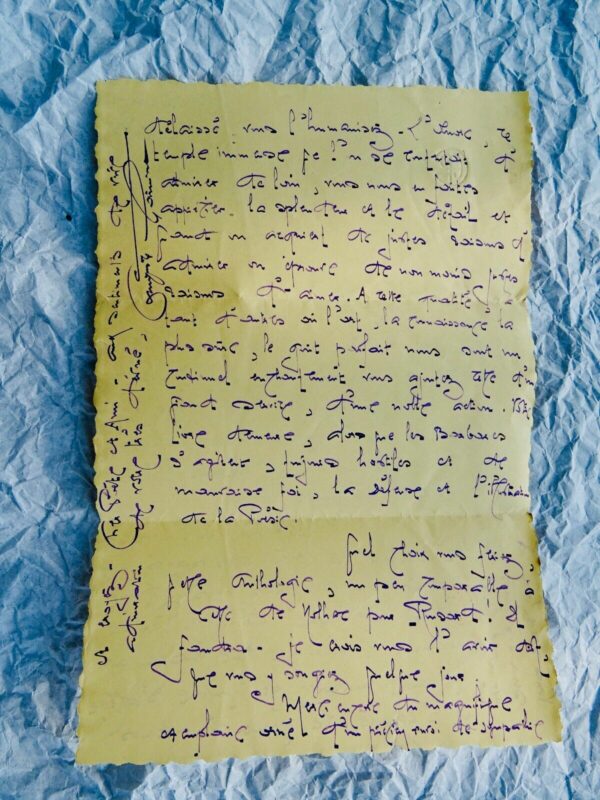 délaissé vous l'humanisez. L'œuvre, ce
temple immense que l'on se contentait d'
admirer de loin, vous nous en faites
apprécier la splendeur et le détail et
quand on acquiert de justes raisons d'
admirer on éprouve de non moins justes
raisons d'aimer. A cette qualité, à
tant d'autres où l'art, la connaissance la
plus sûre, le goût parfait nous sont un
continuel enchantement vous ajoutez celle d'un
grand service, d'une noble action. Votre
livre demeure, alors que les Barbares
s'agitent, toujours hostiles et de
mauvaise foi, la défense et l'
de la Poésie.
Quel choix vous feriez,
quelle Anthologie, un peu comparable à
celle de Nolhac pour Ronsard! Il
faudra - je crois vous l'avoir dit,
que vous y songiez quelque jour.
Merci encore du magnifique
exemplaire orné d'un précieux envoi de sympathie
et croyez - cher Poète et Ami - aux sentiments de vive
admiration de votre très dévoué,